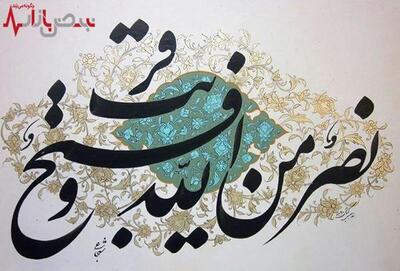 نبض بازار
نصرٌ من اللّه و فتح قریب